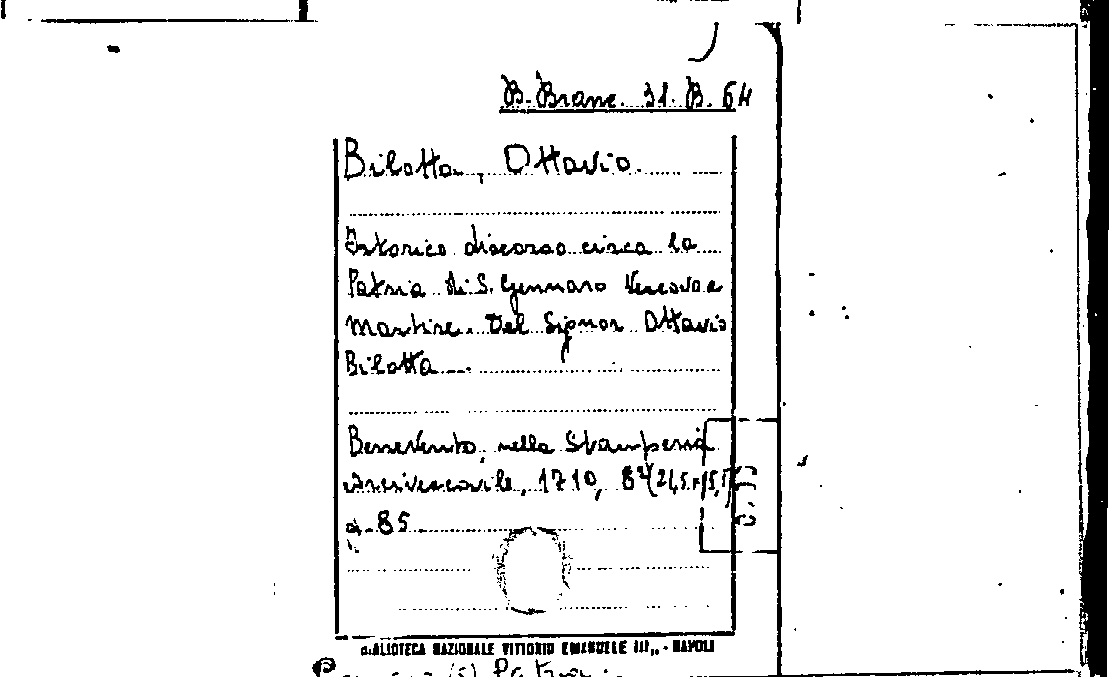 B. Branc. 31. B. 64
Bilotta, Ottavio.
Istorico discorso circa la
Patria di S. Gennaro Vescovo e
Martire. Del Signor Ottavio
Bilotta.
Benevento, nella Stamperia
Arcivescovile, 1710, 8º (21,5x15,5)
p. 85
BIBLIOTECA NAZIONALE VITTORIO EMANUELE III,, - NAPOLI
(S) Patron